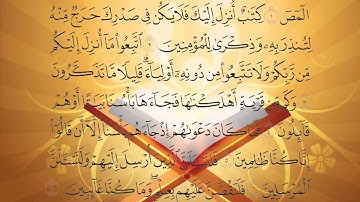 الٓمٓصٓ ١ كِتَٰبٌ أُنزِلَ إِلَيْكَ فَلَا يَكُن فِى صَدْرِكَ حَرَجٌ مِّنْهُ
لِتُنذِرَ بِهِۦ وَذِكْرَىٰ لِلْمُؤْمِنِينَ ٢ ٱتَّبِعُوا۟ مَآ أُنزِلَ إِلَيْكُم
مِّن رَّبِّكُمْ وَلَا تَتَّبِعُوا۟ مِن دُونِهِۦٓ أَوْلِيَآءَ قَلِيلًا مَّا تَذَكَّرُونَ
٣ وَكَم مِّن قَرْيَةٍ أَهْلَكْنَٰهَا فَجَآءَهَا بَأْسُنَا بَيَٰتًا أَوْ هُمْ
قَآئِلُونَ ٤ فَمَا كَانَ دَعْوَىٰهُمْ إِذْ جَآءَهُم بَأْسُنَآ إِلَّآ أَن قَالُوٓا۟
إِنَّا كُنَّا ظَٰلِمِينَ ٥ فَلَنَسْـَٔلَنَّ ٱلَّذِينَ أُرْسِلَ إِلَيْهِمْ وَلَنَسْـَٔلَنَّ
ٱلْمُرْسَلِينَ ٦ فَلَنَقُصَّنَّ عَلَيْهِم بِعِلْمٍ وَمَا كُنَّا غَآئِبِينَ